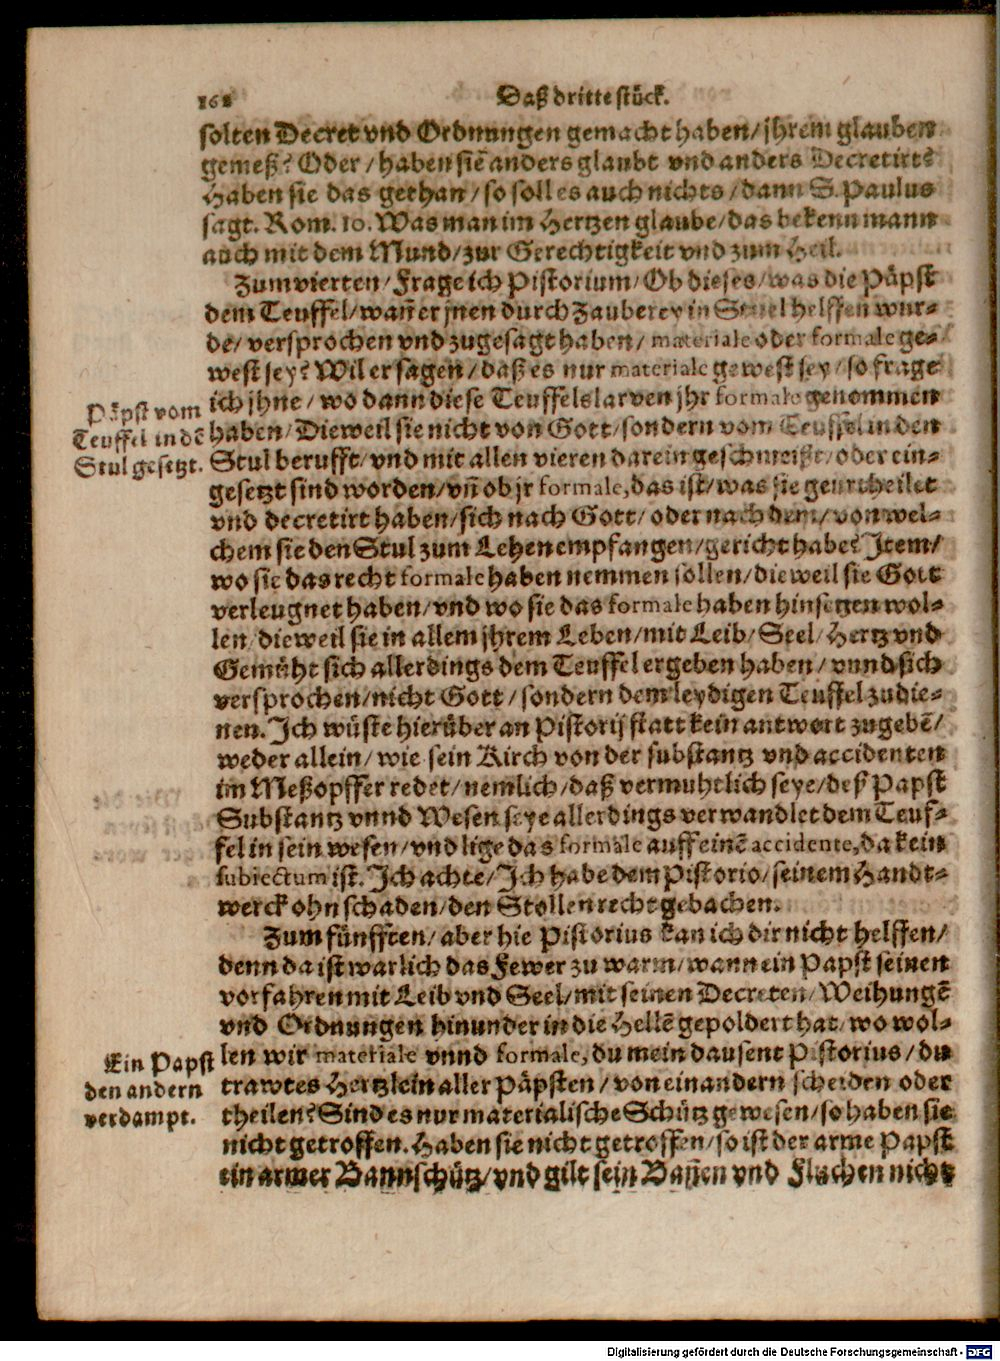 162
Daß dritte stück.
solten Decret vnd Ordnungen gemacht haben/ jhrem glauben
gemeß? Oder/ haben siē anders glaubt vnd anders Decretirt?
Haben sie das gethan/ so soll es auch nichts/ dann S. Paulus
sagt. Rom. 10. Was man im Hertzen glaube/ das bekenn mann
auch mit dem Mund/ zur Gerechtigkeit vnd zum Heil.
Zum vierten/ Frage ich Pistorium/ Ob dieses/ was die Päpst
dem Teuffel/ wañ er jnen durch Zauberey in Stuel helffen wur-
de/ versprochen vnd zugesagt haben/ materiale oder formale ge-
west sey? Wil er sagen/ daß es nur materiale gewest sey/ so frage
ich jhne/ wo dann diese Teuffelslarven jhr formale genommen
haben/ Dieweil sie nicht von Gott/ sondern vom Teuffel in den
Stul berufft/ vnd mit allen vieren darein geschmeißt/ oder ein-
gesetzt sind worden/ vñ ob jr formale, das ist/ was sie geurtheilet
vnd decretirt haben/ sich nach Gott/ oder nach dem/ von wel-
chem sie den Stul zum Lehen empfangen/ gericht habe? Item/
wo sie das recht formale haben nemmen sollen/ dieweil sie Gott
verleugnet haben/ vnd wo sie das formale haben hinsetzen wol-
len/ dieweil sie in allem jhrem Leben/ mit Leib/ Seel/ Hertz vnd
Gemüht sich allerdings dem Teuffel ergeben haben/ vnnd sich
versprochen/ nicht Gott/ sondern dem leydigen Teuffel zudie-
nen. Ich wüste hierüber an Pistorij statt kein antwort zugebē/
weder allein/ wie sein Kirch von der substantz vnd accidenten
im Meßopffer redet/ nemlich/ daß vermuhtlich seye/ deß Papst
Substantz vnnd Wesen seye allerdings verwandlet dem Teuf-
fel in sein wesen/ vnd lige das formale auff einē accidente, da kein
subiectum ist. Ich achte/ Ich habe dem Pistorio/ seinem Handt-
werck ohn schaden/ den Stollen recht gebachen.
Zum fünfften/ aber hie Pistorius kan ich dir nicht helffen/
denn da ist warlich das Fewer zu warm/ wann ein Papst seinen
vorfahren mit Leib vnd Seel/ mit seinen Decreten/ Weihungē
vnd Ordnungen hinunder in die Hellē gepoldert hat/ wo wol-
len wir materiale vnnd formale, du mein dausent Pistorius/ du
trawtes Hertzlein aller Päpsten/ von einandern scheiden oder
theilen? Sind es nur materialische Schütz gewesen/ so haben sie
nicht getroffen. Haben sie nicht getroffen/ so ist der arme Papst
ein armer Bannschütz/ vnd gilt sein Bañen vnd Fluchen nicht
Päpst vom
Teuffel in dē
Stul gesetzt.
Ein Papst
den andern
verdampt.
Digitalisierung gefördert durch die Deutsche Forschungsgemeinschaft - DFG